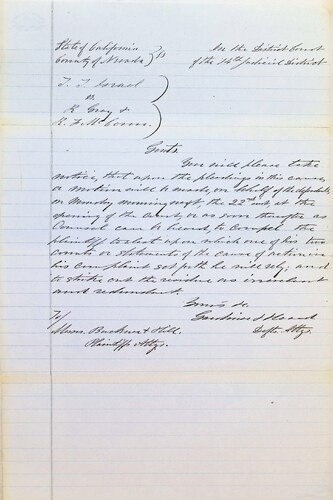 State of California } ss
County of Nevada
In the District Court
of the 14th Judicial District
T. T. Israel
vs
R. Gray &
R. F. McConn.
Gents.
You will please take
notice, that upon the pleadings in this cause,
a motion will be made, on behalf of the defendants
on Monday morning next, the 22nd inst at the
opening of the Court, or as soon thereafter as
Counsel can be heard, to compel the
plaintiff to elect upon which one of his two
counts or statements of the cause of action in
his complaint set forth he will rely; and
to strike out the residue as irrelevant
and redundant.
Yours &c.
Defts. Attys.
To/
Messrs. & Hill
Plaintiffs Attys.